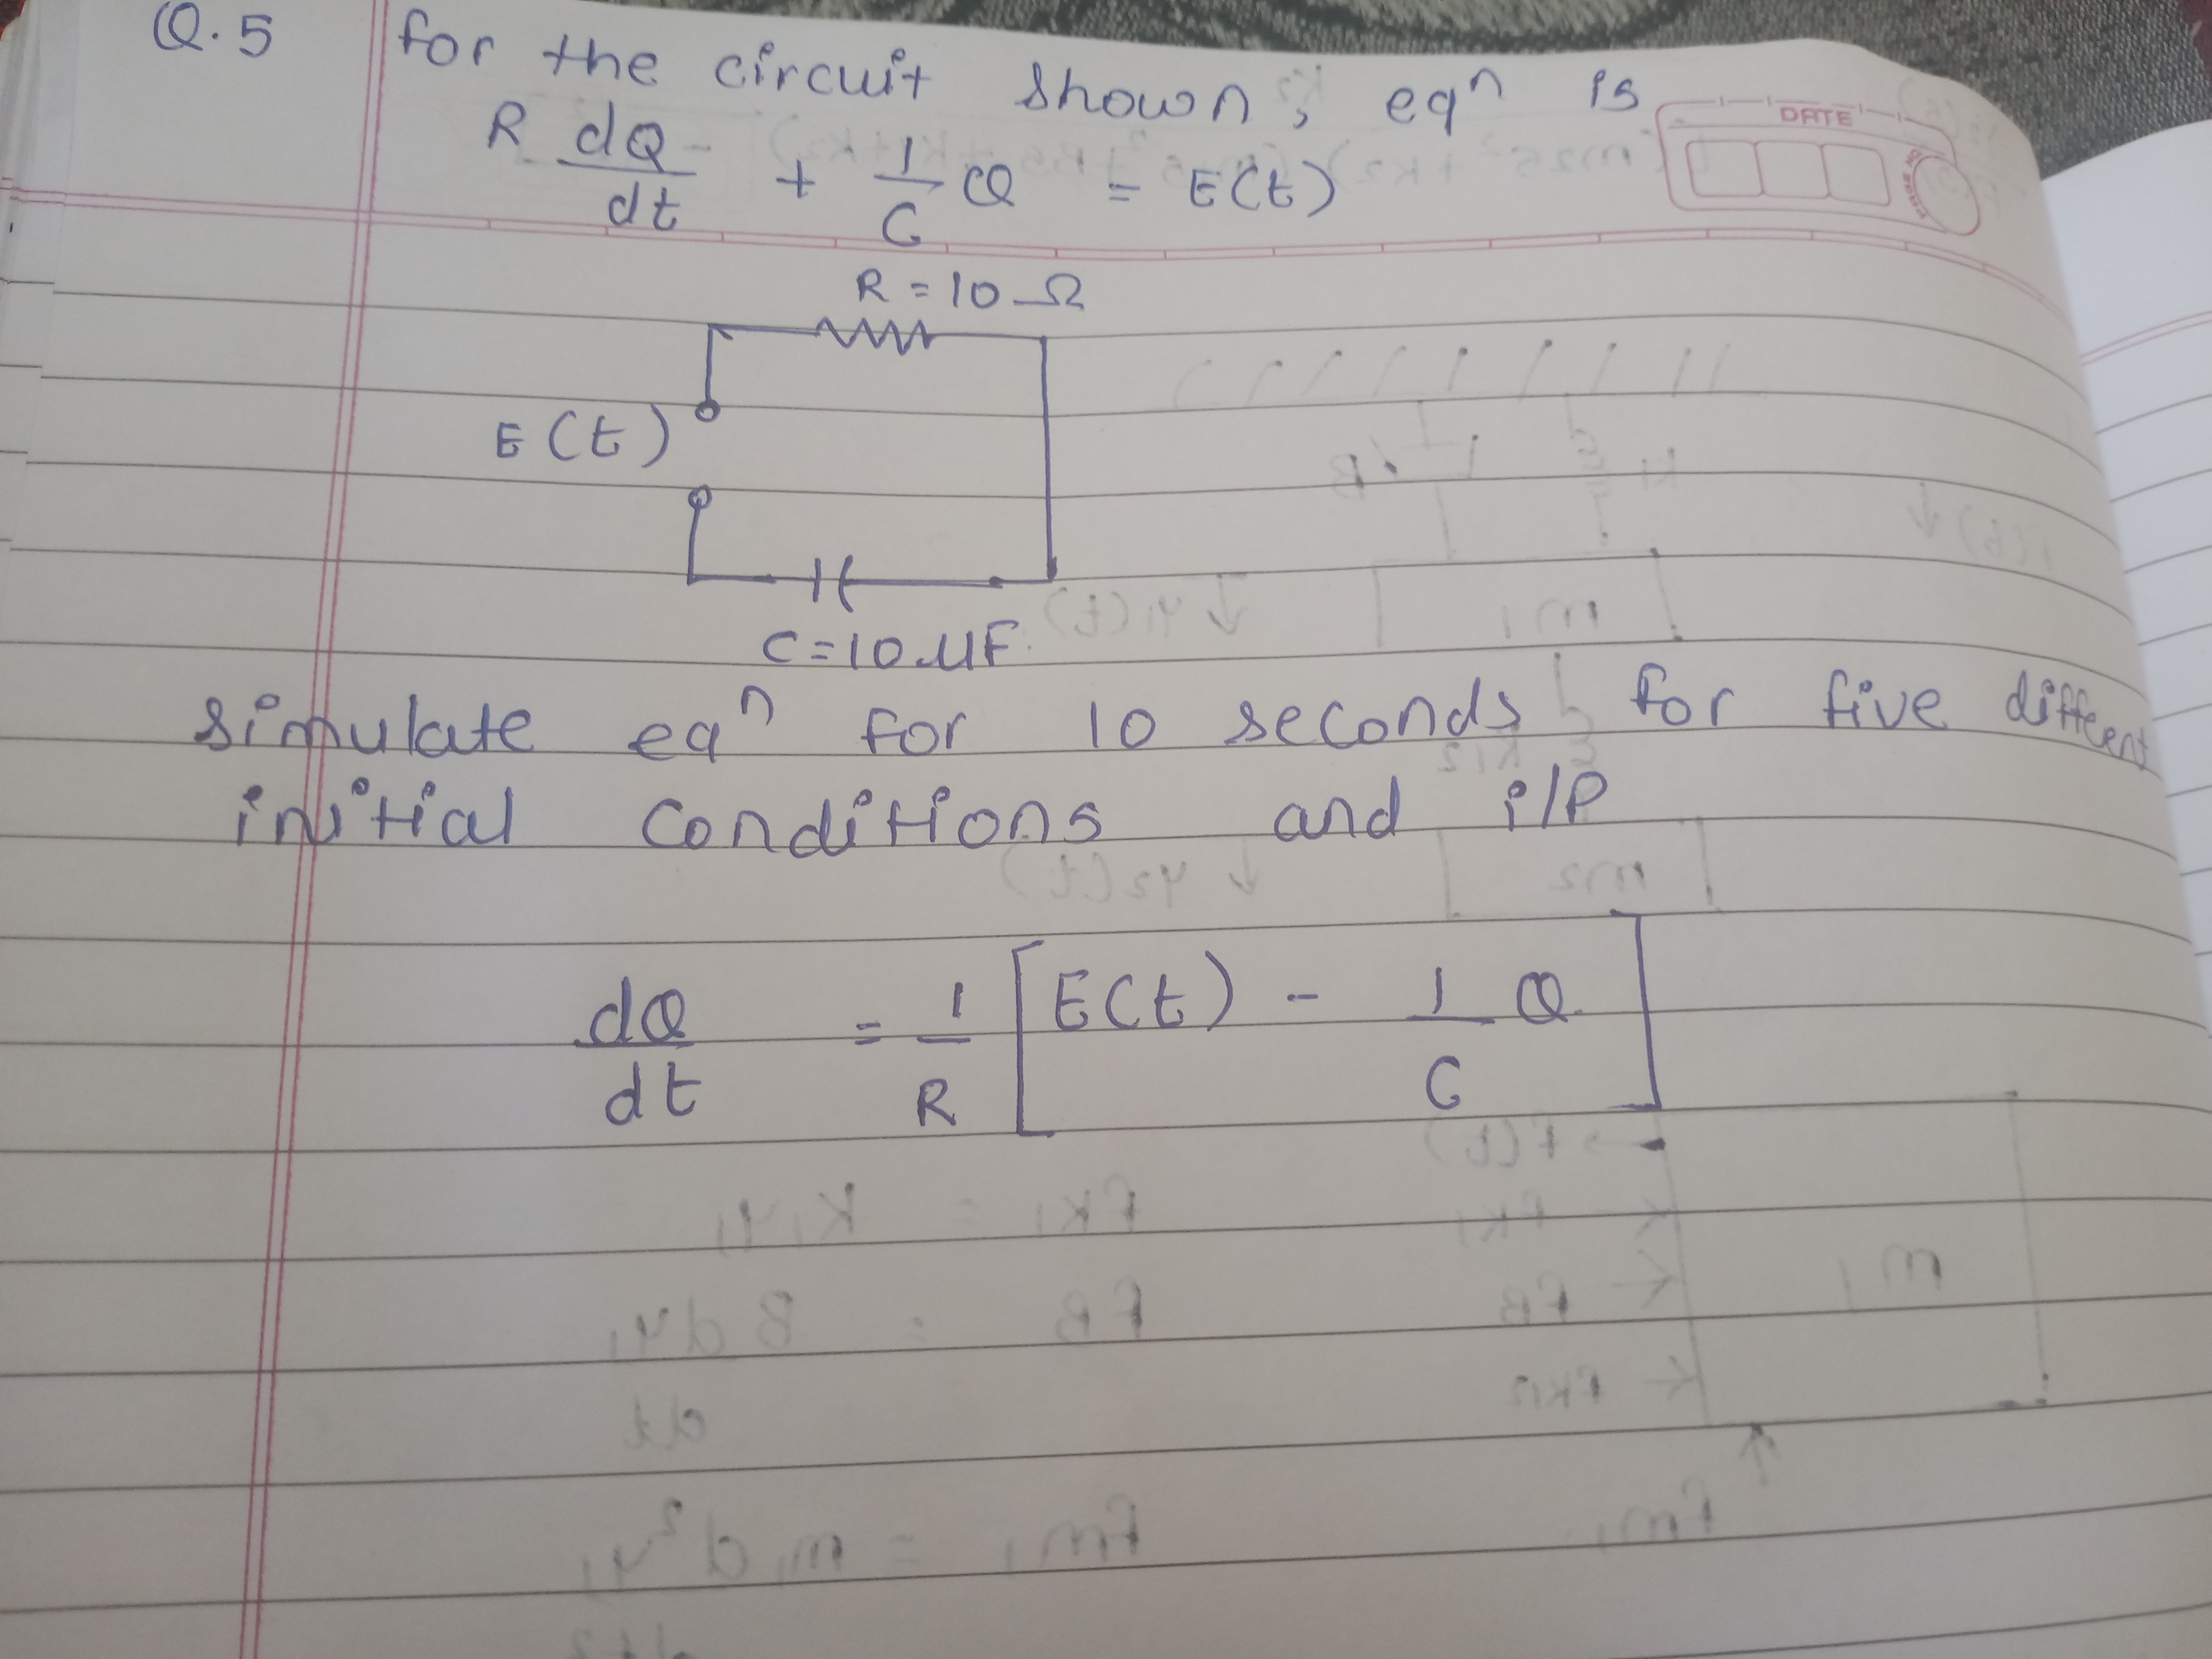 Q.5 for the circuit shown, eqⁿ is
DATE
R dQ/dt + 1/C Q = E(t)
R = 10 Ω
E(t)
C = 10 μF
simulate eqⁿ for 10 seconds for five different
initial conditions and i/P
dQ/dt = 1/R [E(t) - 1/C Q]